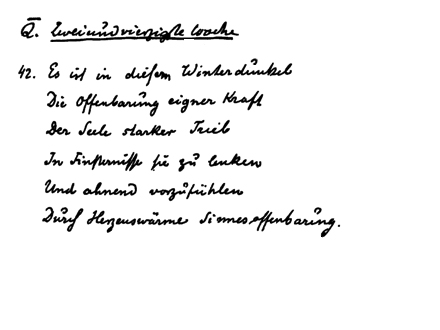 Q̅. Zweiundvierzigste Woche
42. Es ist in diesem Winterdunkel
Die Offenbarung eigner Kraft
Der Seele starker Trieb
In Finsternisse sie zu lenken
Und ahnend vorzufühlen
Durch Herzenswärme Sinnesoffenbarung.